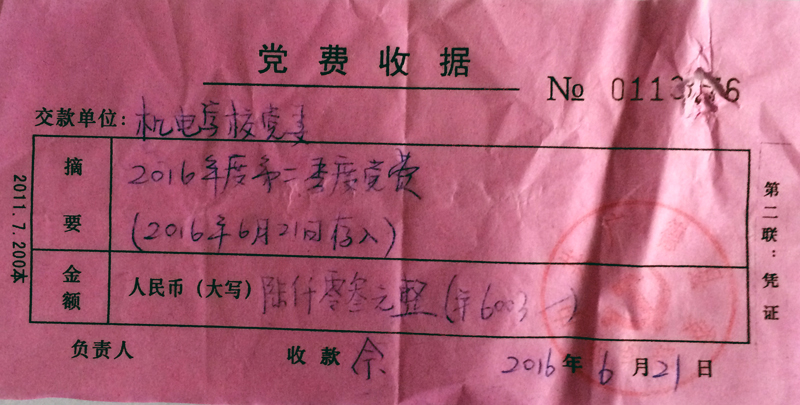 党费收据
№ 0113
交款单位：机电学校党委
摘要
2016年度第二季度党费
（2016年6月21日存入）
金额
人民币（大写）陆仟零叁元整（¥6003—）
负责人
收款 余
2016年6月21日
第二联：凭证
2011.7.200本